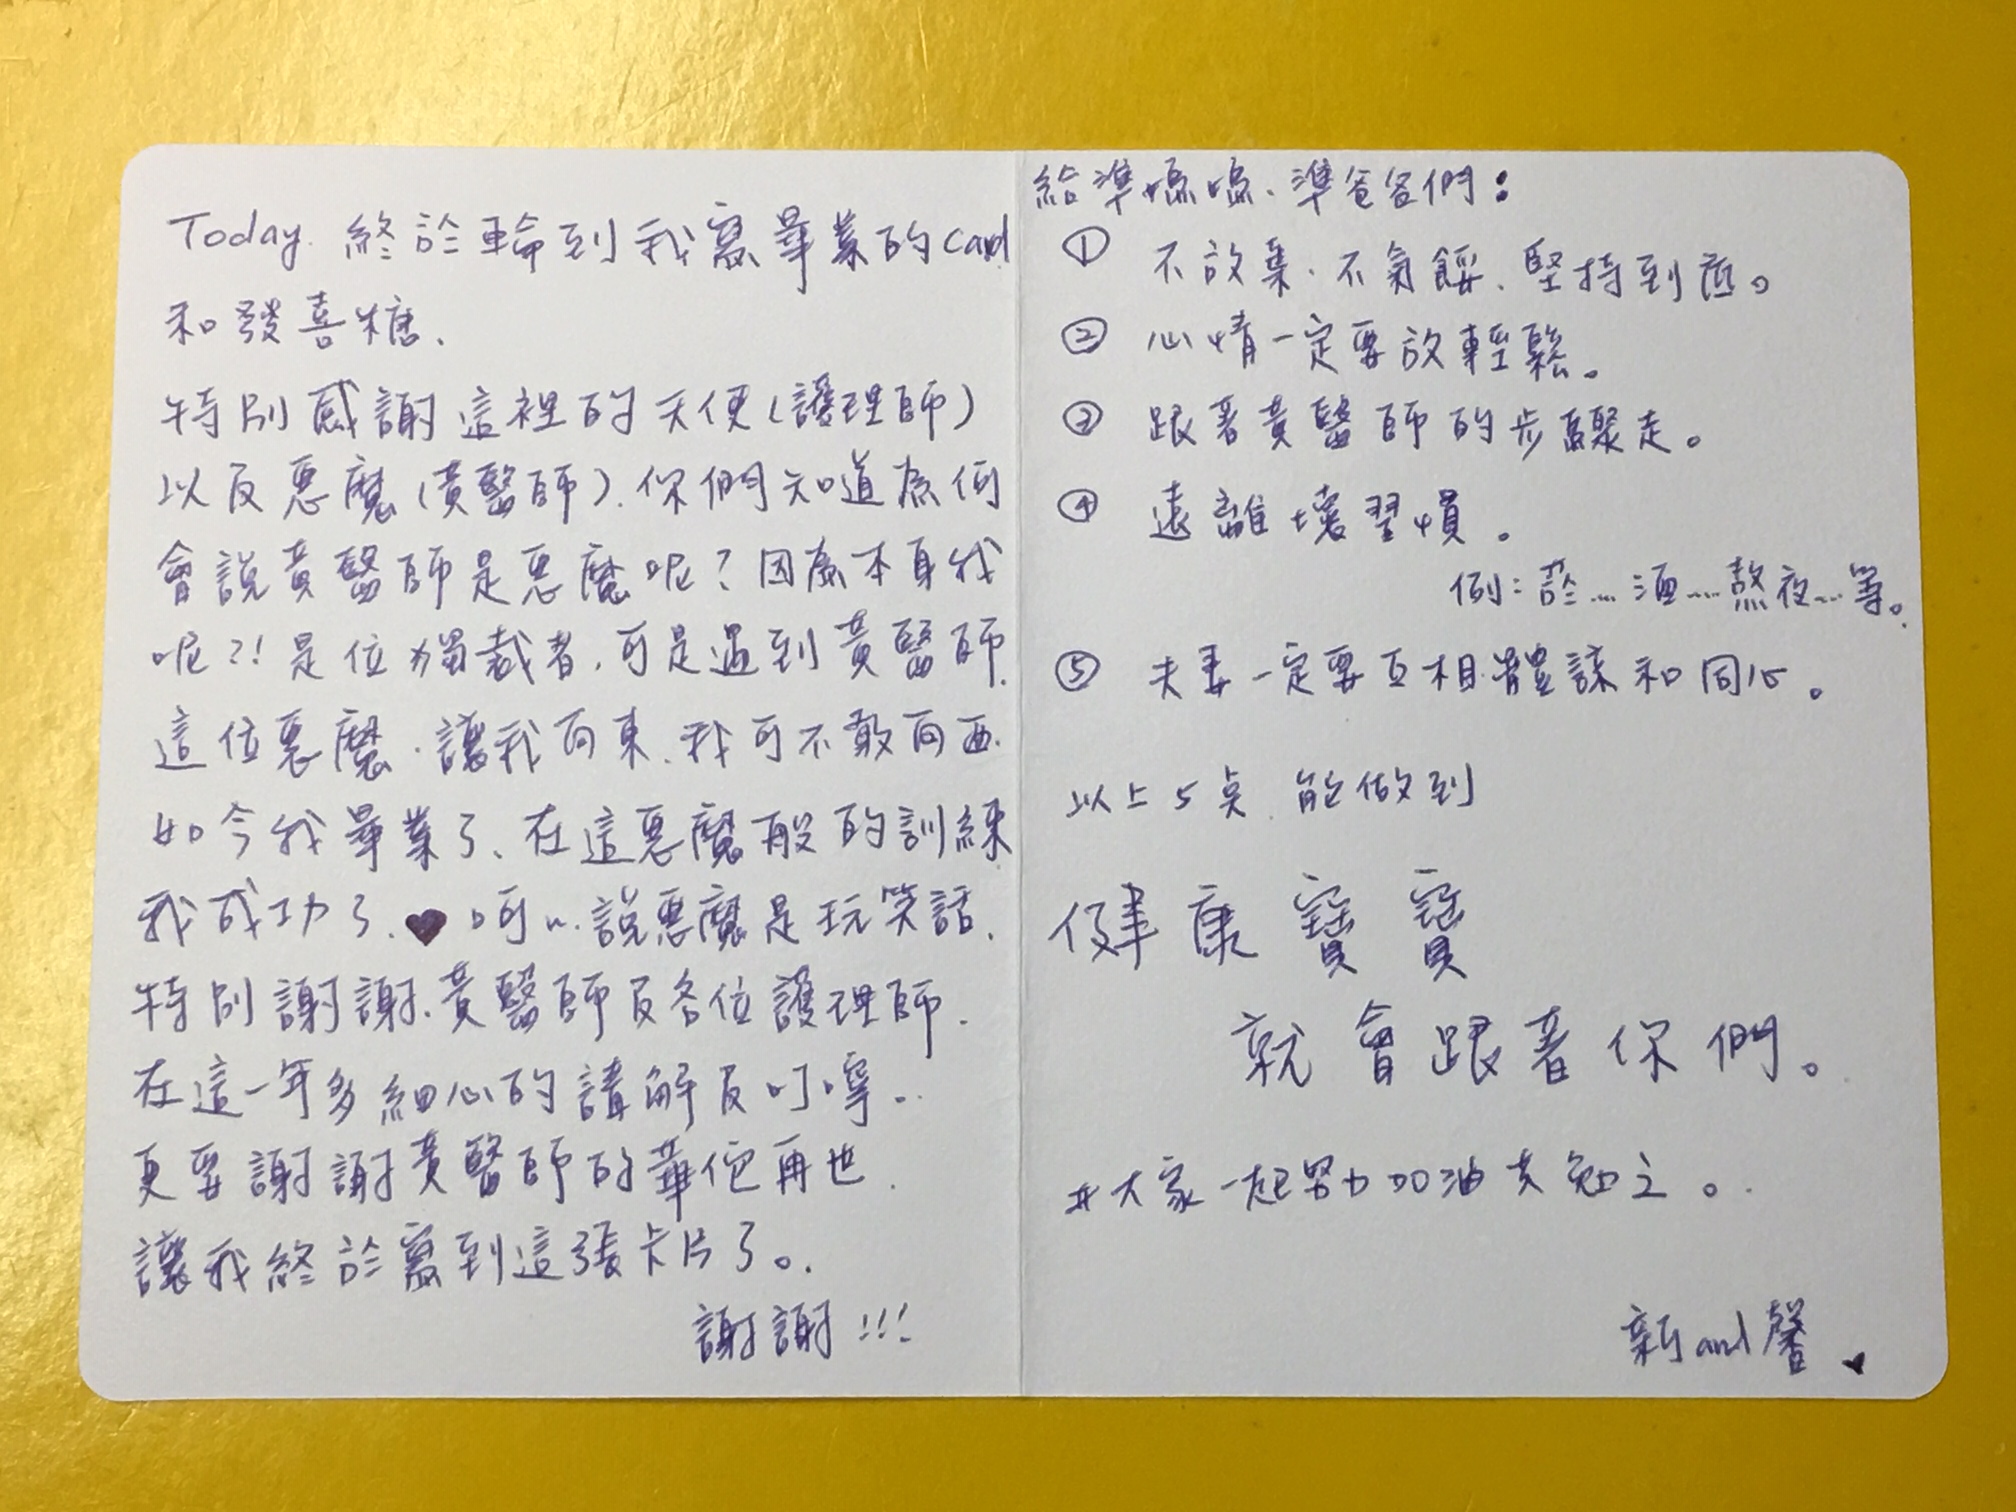 Today. 終於輪到我寫畢業的Card
和發喜糖.
特別感謝這裡的天使(護理師)
以及惡魔(黃醫師).你們知道為何
會說黃醫師是惡魔呢?因為本身我
呢?!是位獨裁者.可是遇到黃醫師.
這位惡魔.讓我向東.我可不敢向西.
如今我畢業了、在這惡魔般的訓練
我成功了.♥呵~.說惡魔是玩笑話.
特別謝謝.黃醫師及各位護理師.
在這一年多細心的講解及叮嚀..
更要謝謝黃醫師的華佗再世.
讓我終於寫到這張卡片了。.
謝謝!!!
給準媽媽、準爸爸們:
① 不放棄.不氣餒.堅持到底。
② 心情一定要放輕鬆。
③ 跟著黃醫師的步驟走。
④ 遠離壞習慣。
例:菸...酒....熬夜...等。
⑤ 夫妻一定要互相體諒和同心。
以上5点.能做到
健康寶寶
就會跟著你們。
#大家一起努力加油共勉之。.
新and馨♥